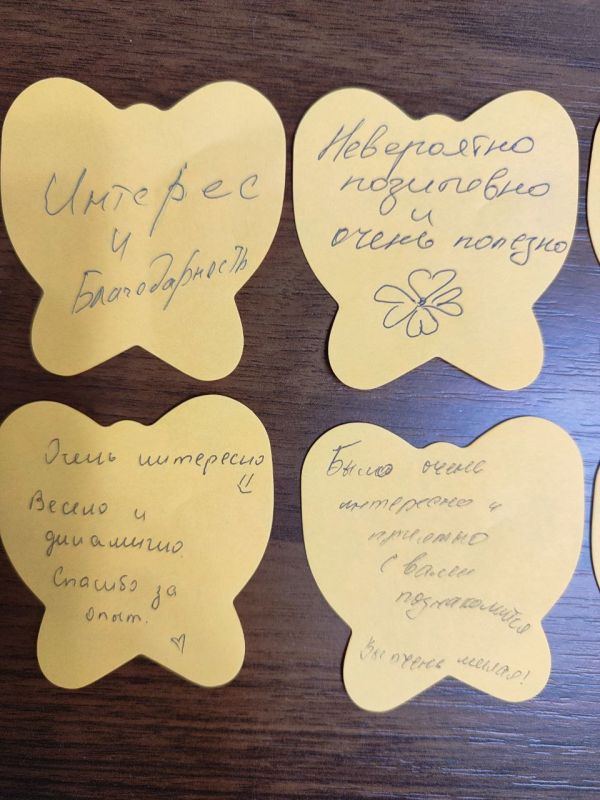 Интерес
и
Благодарность
Невероятно
позитивно
и
очень полезно
Очень интересно
Весело и
динамично.
Спасибо за
опыт.
Было очень
интересно и
приятно
с вами
познакомится
Вы очень милая!